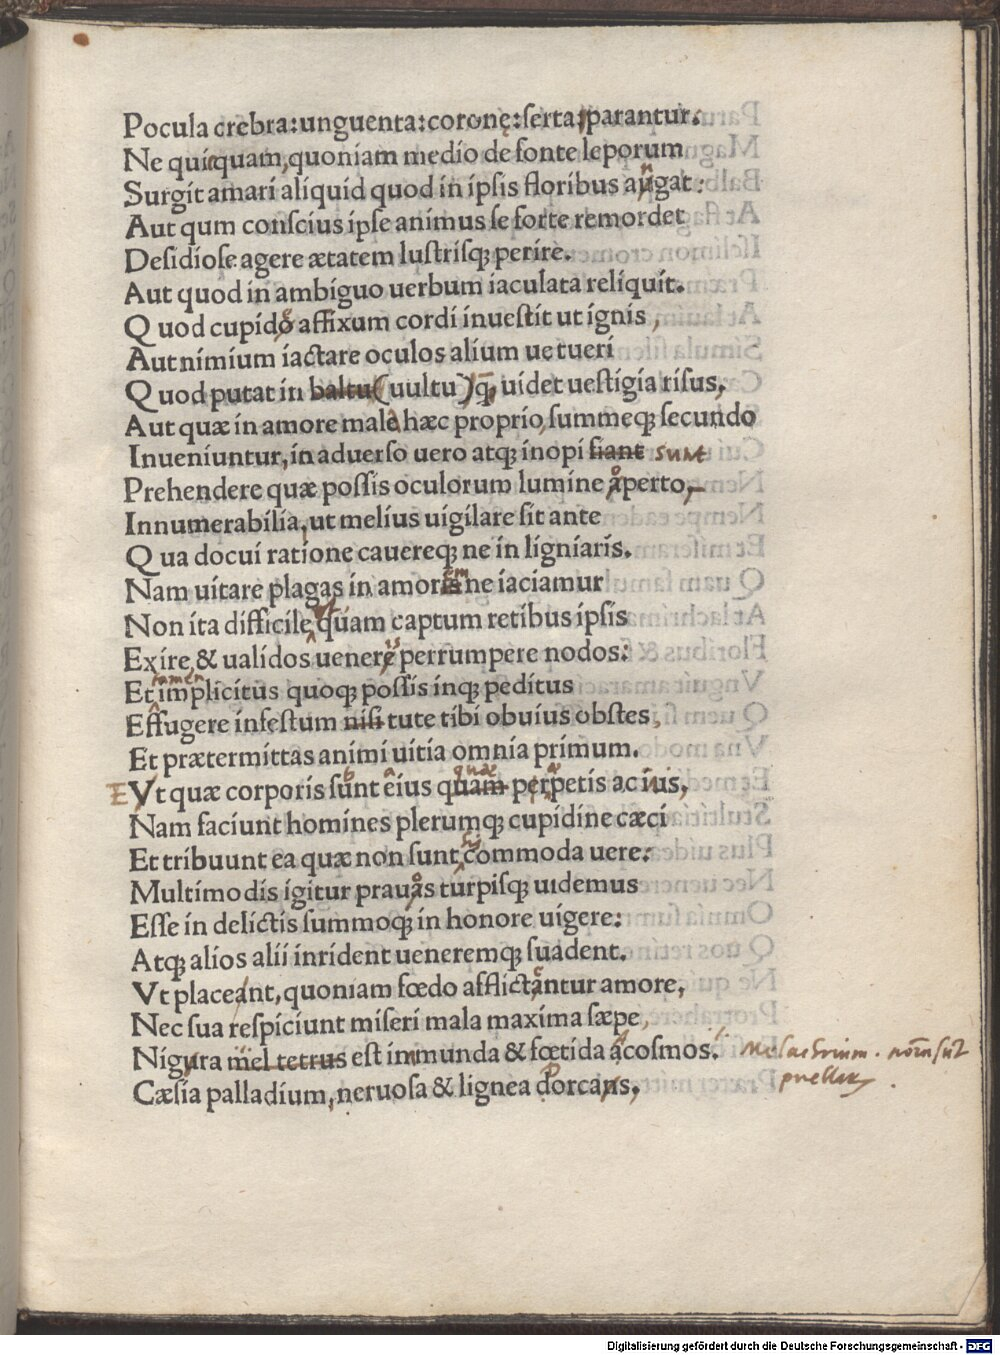 Pocula crebra: unguenta: coronę: serta: parantur.
Ne quicquam, quoniam medio de fonte leporum
Surgit amari aliquid quod in ipsis floribus angat:
Aut qum conscius ipse animus se forte remordet
Desidiose agere ætatem lustrisq; perire.
Aut quod in ambiguo uerbum iaculata reliquit.
Quod cupido affixum cordi inuestit ut ignis,
Aut nimium iactare oculos alium ue tueri
Quod putat in baltu (uultu) q; uidet uestigia risus,
Aut quæ in amore male hæc proprio, summeq; secundo
Inueniuntur, in aduerso uero atq; inopi fiant sunt
Prehendere quæ possis oculorum lumine aperto,
Innumerabilia, ut melius uigilare sit ante
Qua docui ratione cauereq; ne in ligniaris.
Nam uitare plagas in amoris ne iaciamur
Non ita difficile, quam captum retibus ipsis
Exire, & ualidos uenere perrumpere nodos:
tamen
Et implicitus quoq; possis inq; peditus
Effugere infestum nisi tute tibi obuius obstes,
Et prætermittas animi uitia omnia primum.
quæ
E Vt quæ corporis sunt eius quam perpetis ac ius,
Nam faciunt homines plerumq; cupidine cæci
Et tribuunt ea quæ non sunt commoda uere:
Multimodis igitur prauas turpisq; uidemus
Esse in delictis summoq; in honore uigere:
Atq; alios alii inrident ueneremq; suadent.
Vt placeant, quoniam fœdo afflictantur amore,
Nec sua respiciunt miseri mala maxima sæpe,
Nigura mel tetrus est immunda & fœtida acosmos.
puellar
Cæsia palladium, neruosa & lignea dorcans,
Digitalisierung gefördert durch die Deutsche Forschungsgemeinschaft - DFG